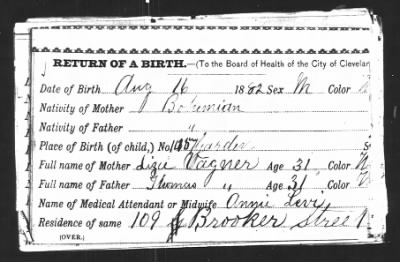 RETURN OF A BIRTH.—(To the Board of Health of the City of Clevelan
Date of Birth Aug 16 1882 Sex M Color
Nativity of Mother Bohemian
Nativity of Father "
Place of Birth (of child,) No. Garden
Full name of Mother Lizie Vagner Age 31 Color
Full name of Father Thomas " Age 31 Color
Name of Medical Attendant or Midwife Annie Levi
Residence of same 109 Brooker Street
(OVER.)